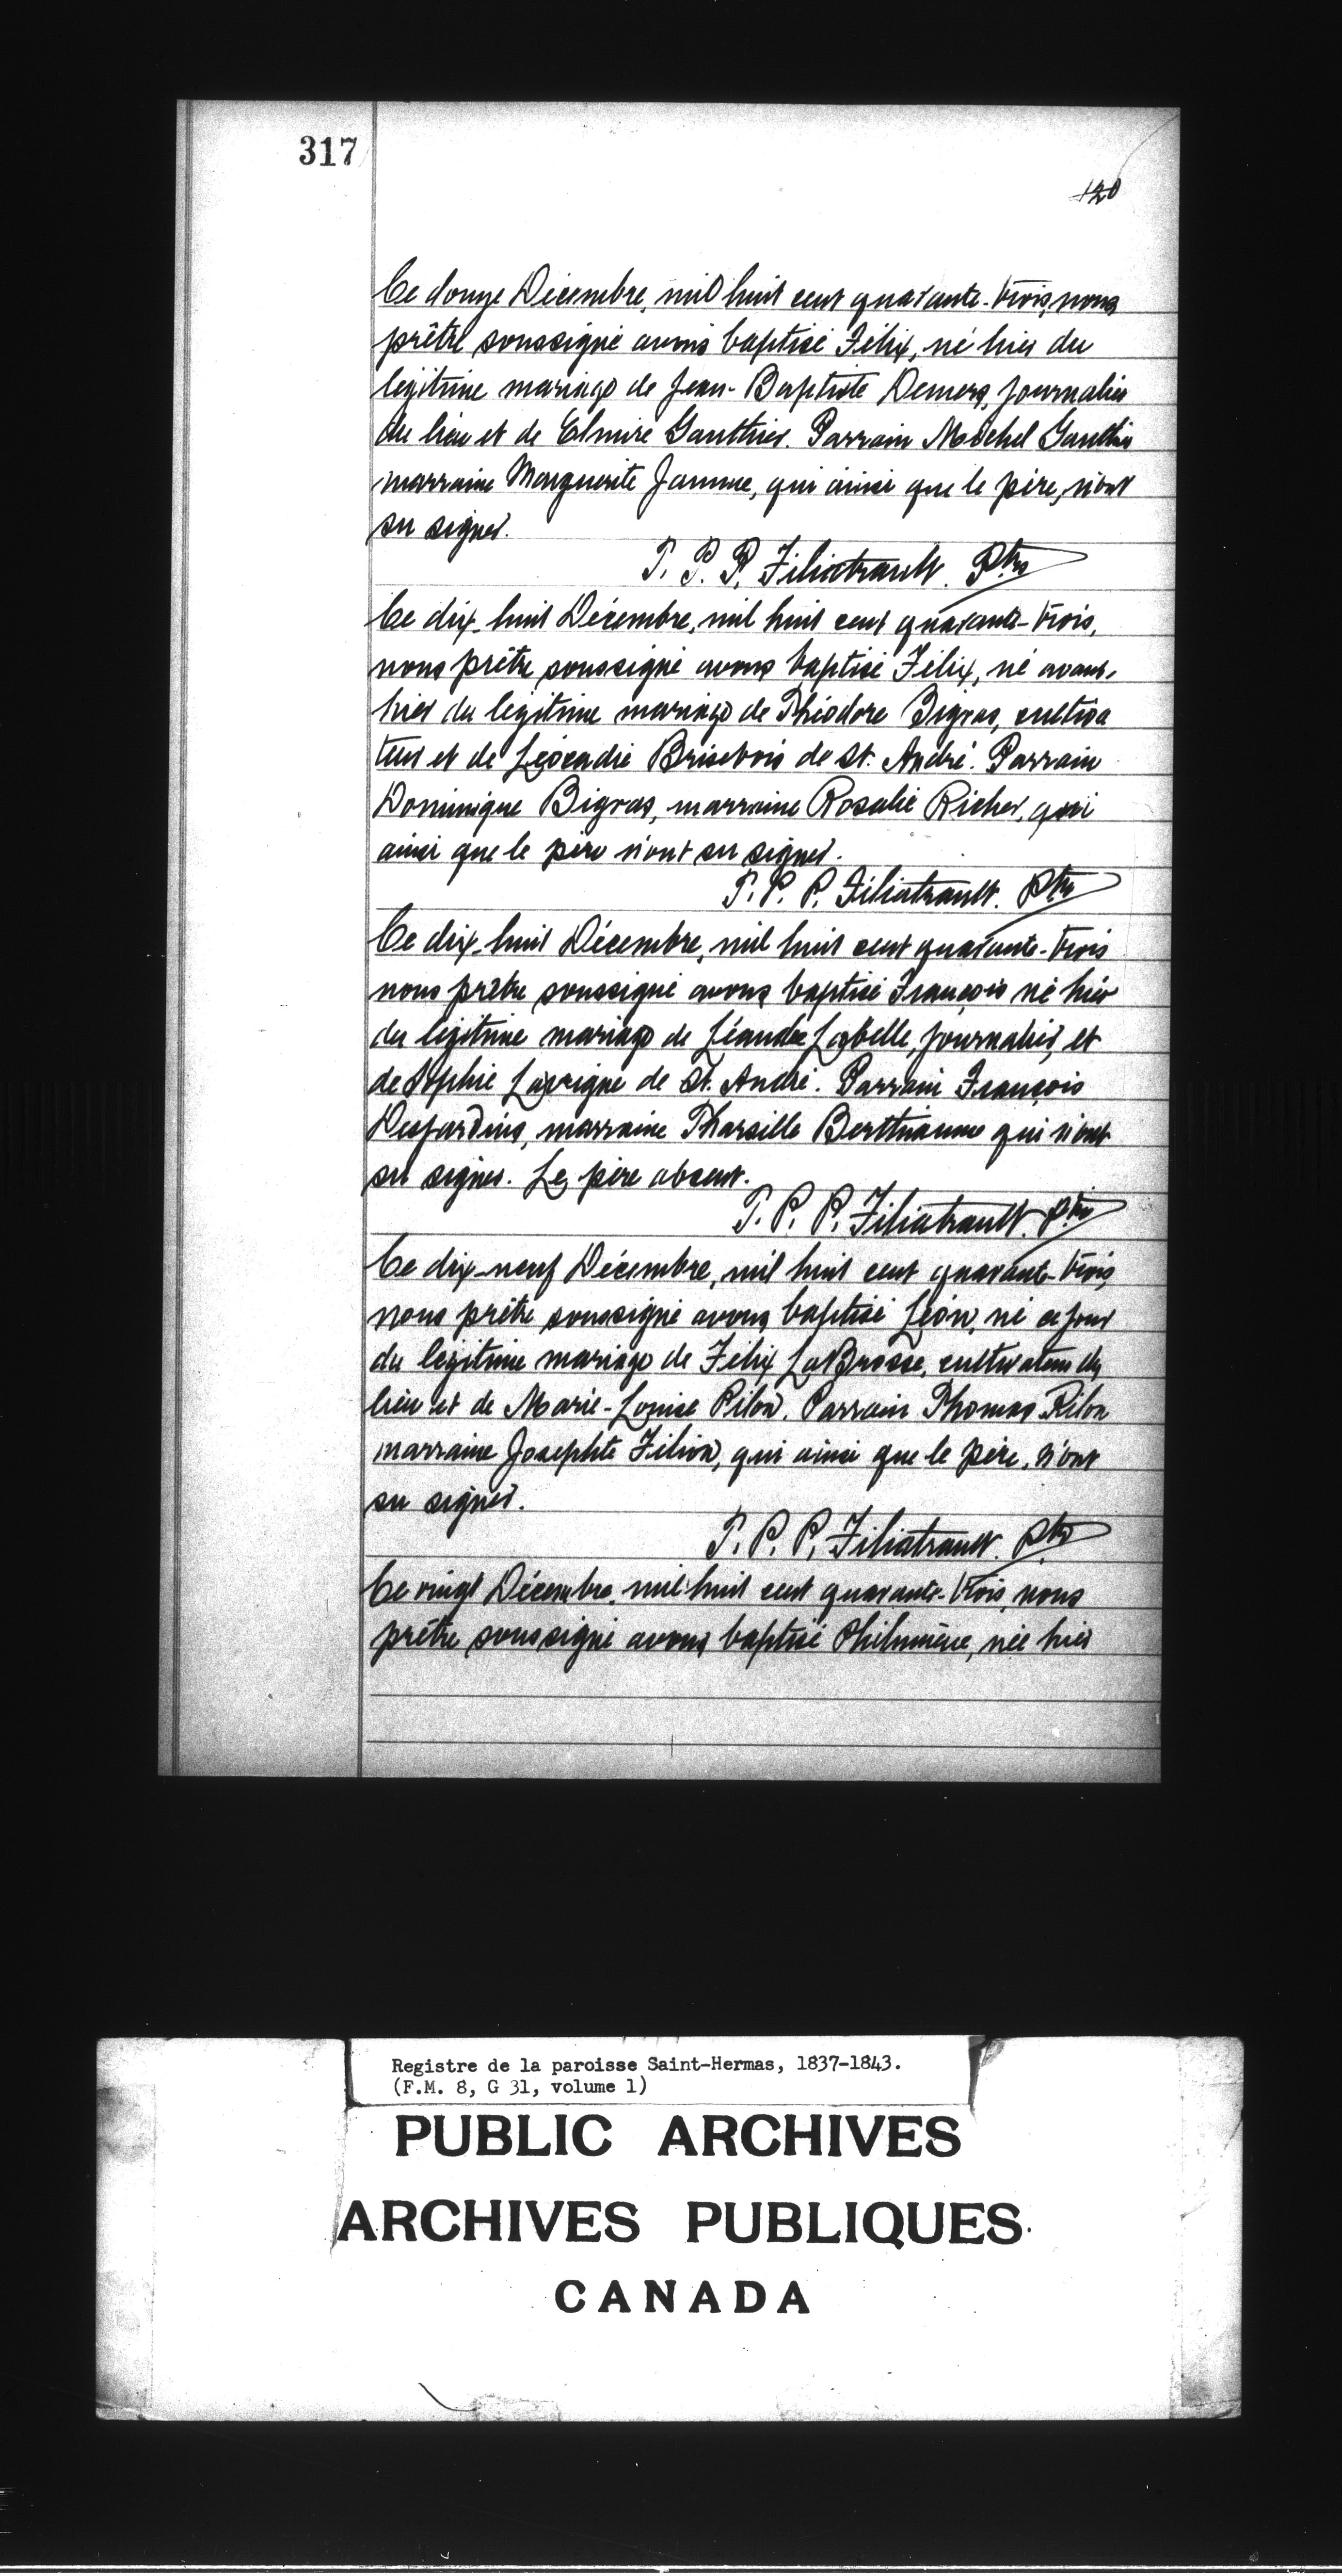 317
120
Ce douze Décembre, mil huit cent quarante-trois, nous
prêtre soussigné avons baptisé Félix, né hier du
légitime mariage de Jean-Baptiste Demers, journalier
du lieu et de Elmire Gauthier. Parrain Michel Gauthier
marraine Marguerite Jamme, qui ainsi que le père, n'ont
su signer.
T. P. P. Filiatrault. Ptre
Ce dix-huit Décembre, mil huit cent quarante-trois,
nous prêtre soussigné avons baptisé Félix, né avant-
hier du légitime mariage de Théodore Bigras, cultiva
teur et de Léocadie Brisebois de St. André. Parrain
Dominique Bigras, marraine Rosalie Richer, qui
ainsi que le père n'ont su signer.
T. P. P. Filiatrault. Ptre
Ce dix-huit Décembre, mil huit cent quarante-trois
nous prêtre soussigné avons baptisé François né hier
du légitime mariage de Léandre Labelle, journalier, et
de Sophie Lavigne de St. André. Parrain François
Desjardins, marraine Tharsille Berthiaume qui n'ont
su signer. Le père absent.
T. P. P. Filiatrault. Ptre
Ce dix-neuf Décembre, mil huit cent quarante-trois,
nous prêtre soussigné avons baptisé Léon, né ce jour
du légitime mariage de Félix LaBrosse, cultivateur du
lieu et de Marie-Louise Pilon. Parrain Thomas Pilon
marraine Josephte Filion, qui ainsi que le père, n'ont
su signer.
T. P. P. Filiatrault. Ptre
Ce vingt Décembre, mil huit cent quarante-trois, nous
prêtre soussigné avons baptisé Philomène, née hier
Registre de la paroisse Saint-Hermas, 1837-1843.
(F.M. 8, G 31, volume 1)
PUBLIC ARCHIVES
ARCHIVES PUBLIQUES
CANADA